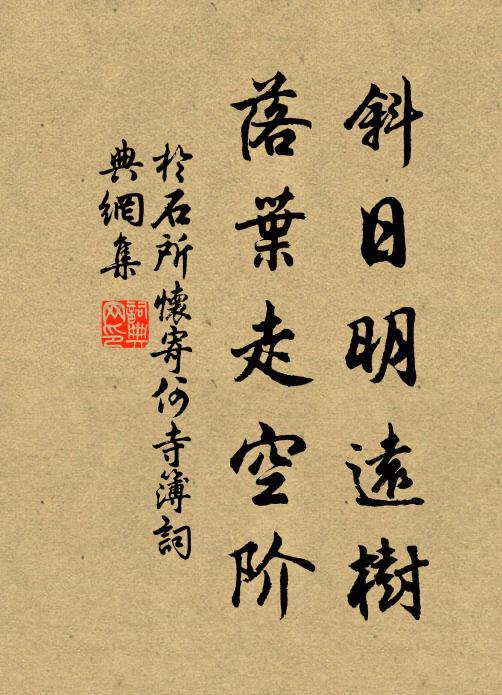 斜日明遠樹
落葉走空阶
於石所懷寄何寺簿詞
典網集
詞典网印